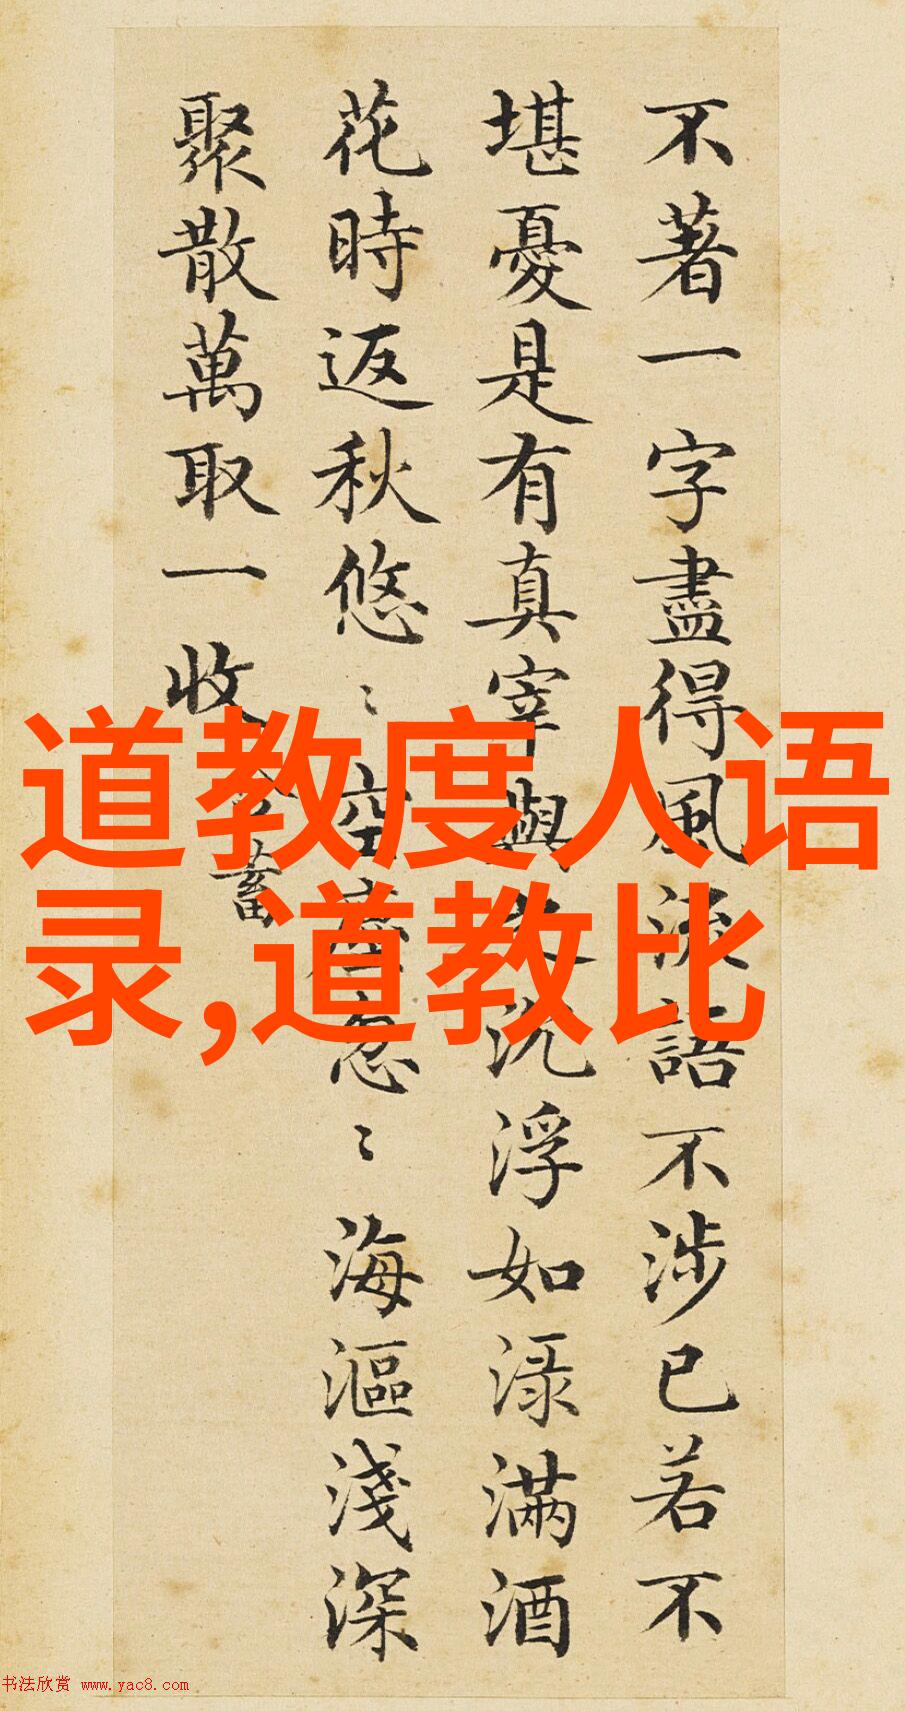 不著一字盡得風流語不涉已若不
堪憂是有真宰與之沉浮如渌滿酒
花時返秋悠〻空塵忽〻海漚淺深
聚散萬取一收
蓄
道教度人语
录,道教比
书法欣赏 www.yac8.com